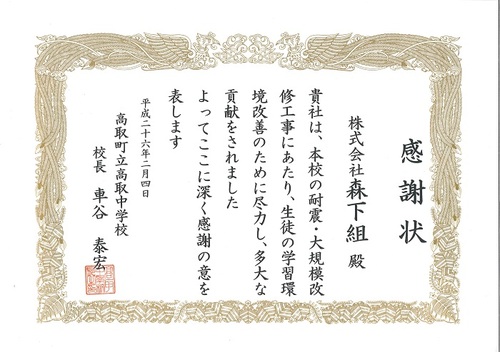 感謝状
株式会社森下組 殿
貴社は、本校の耐震・大規模改
修工事にあたり、生徒の学習環
境改善のために尽力し、多大な
貢献をされました
よってここに深く感謝の意を
表します
平成二十六年二月四日
高取町立高取中学校
校長 車谷 泰宏